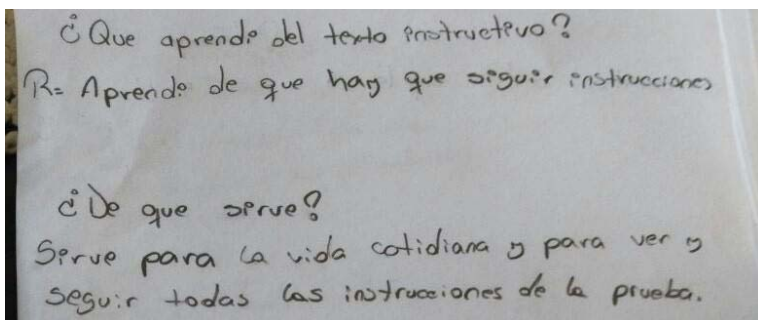 ¿Que aprendi del texto instructivo?
R= Aprendi de que hay que siguir instrucciones
¿De que sirve?
Sirve para la vida cotidiana y para ver y
seguir todas las instrucciones de la prueba.